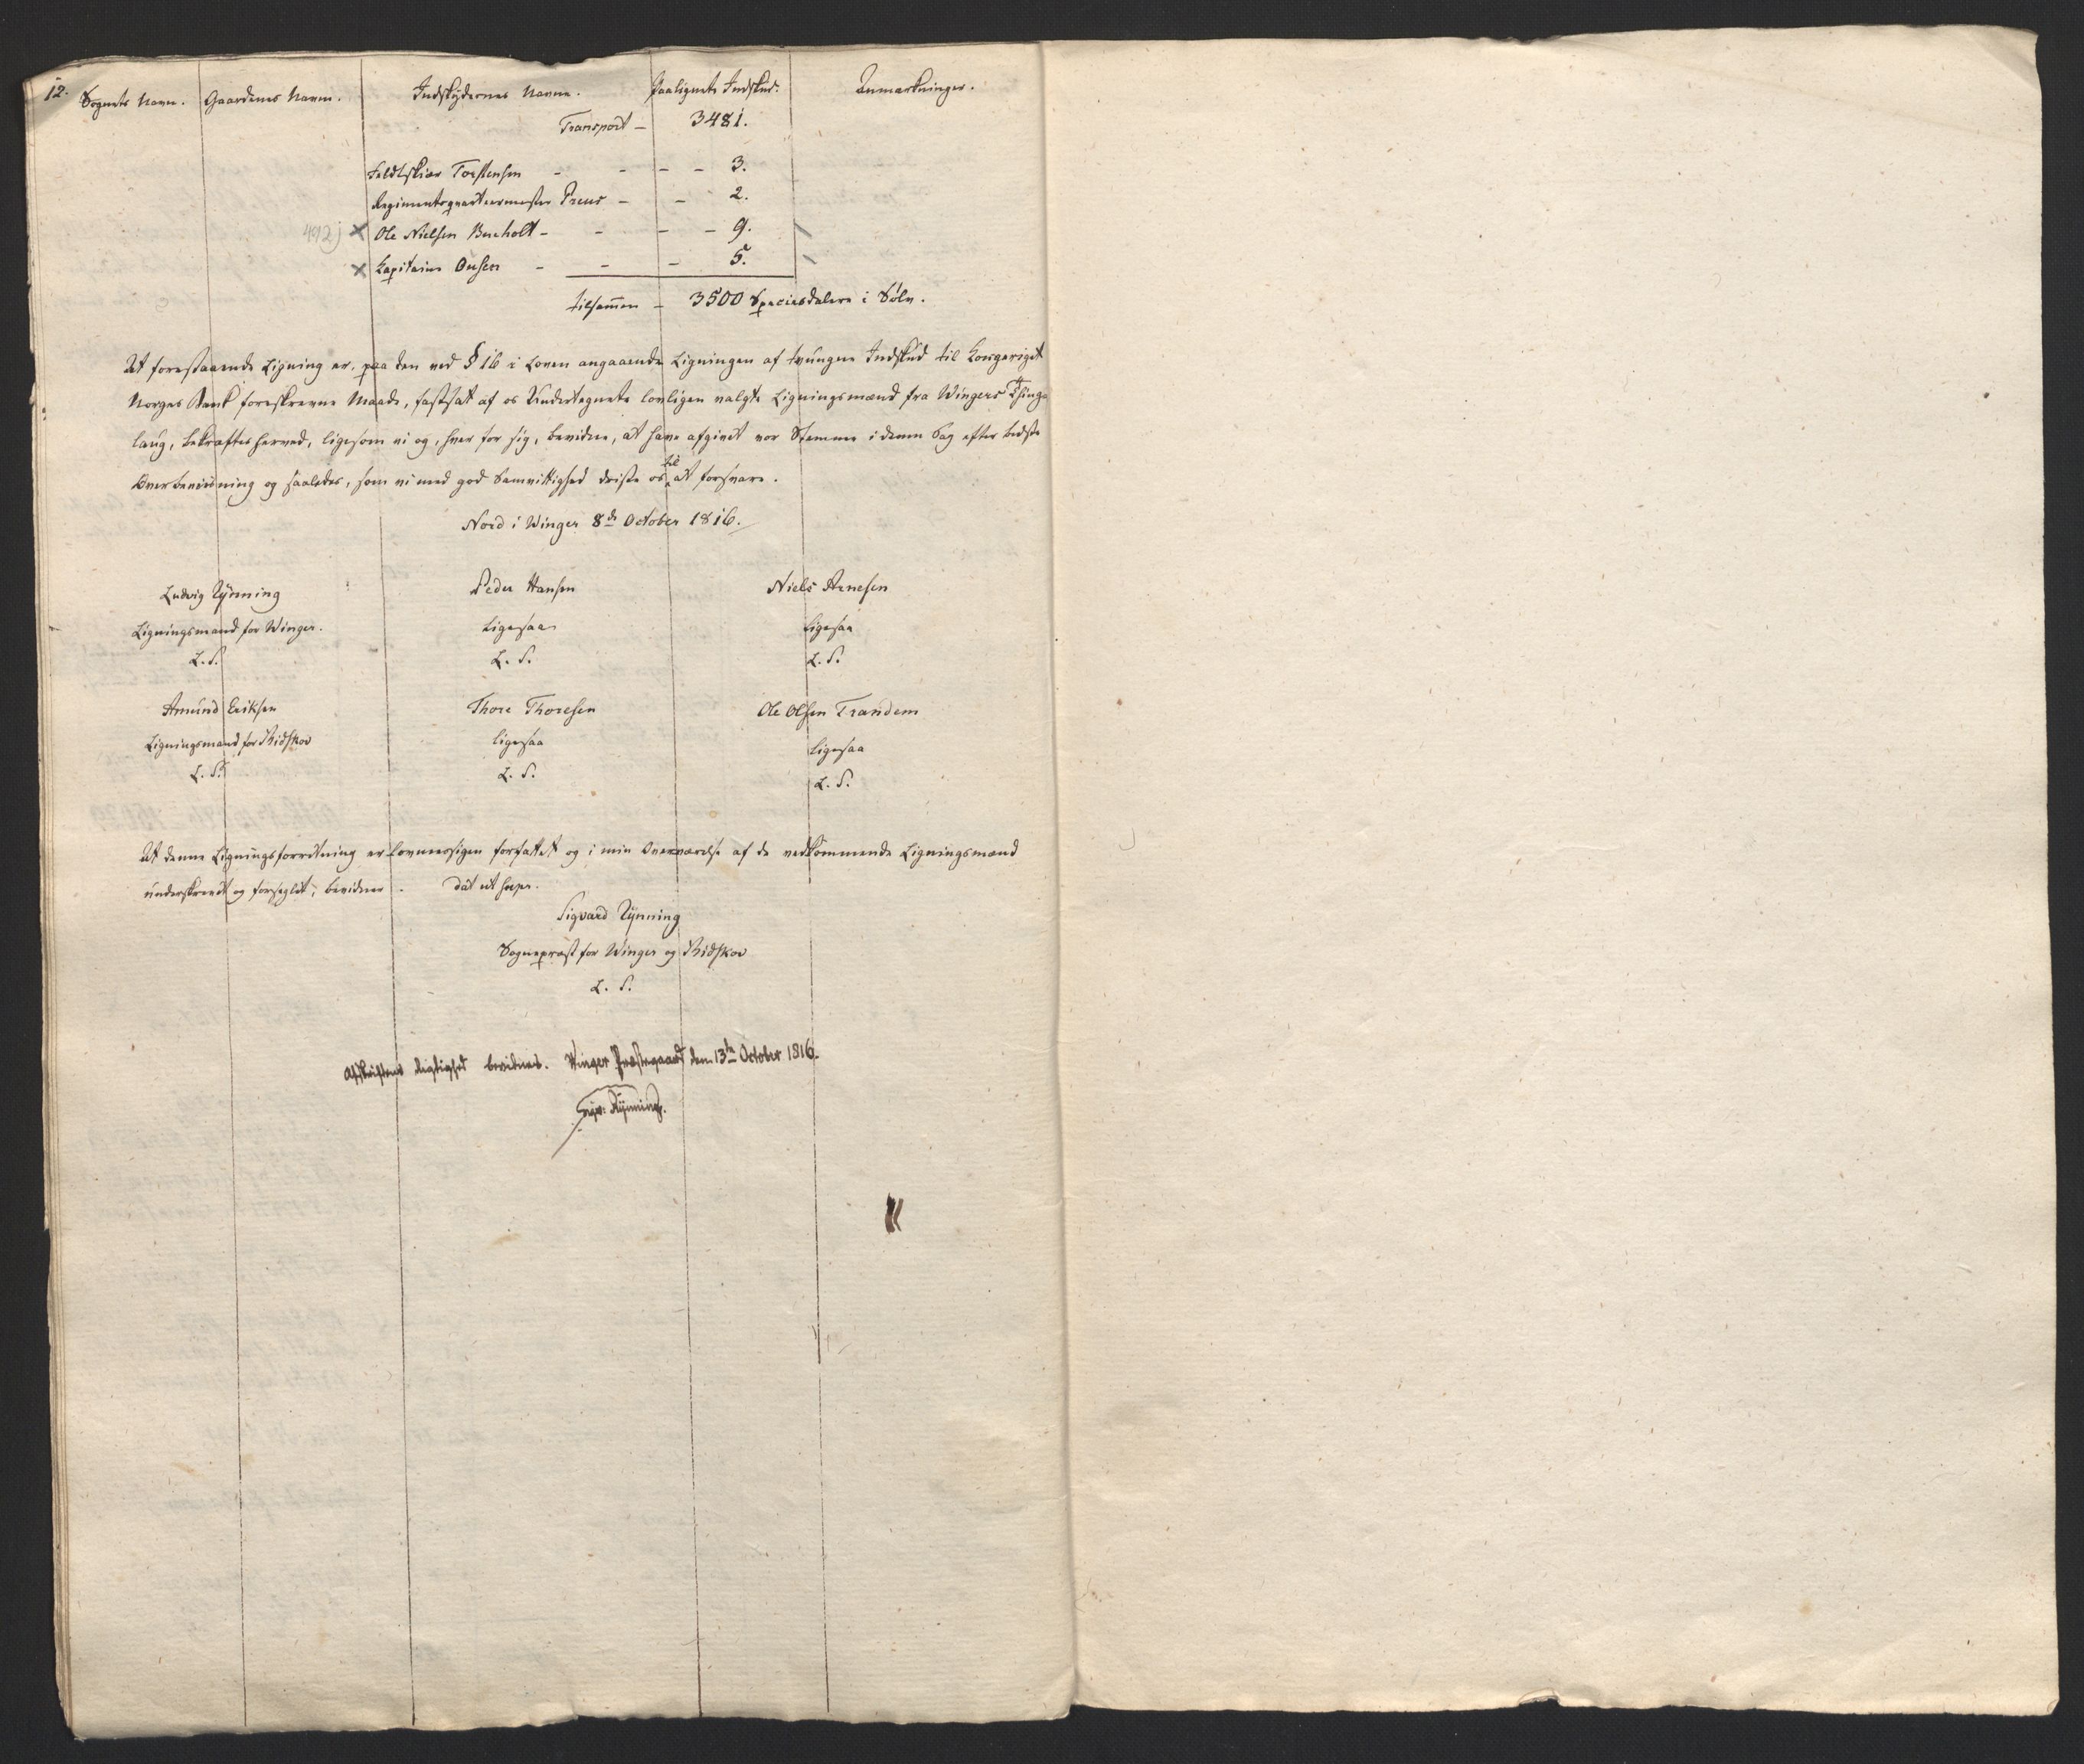 12.
Sognets Navn. Gaardenes Navne. Indskydernes Navne. Paalignete Indskud. Anmærkninger.
Transport – 3481.
Feldtskiær Torstensen - - - - 3.
Regimentsqvarteermester Preus - - 2.
492) × Ole Nielsen Bueholt - - - - 9.
× Kapitaine Ousen - - - 5.
tilsammen – 3500 Speciesdalere i Sølv.
At forestaaende Ligning er, paa den ved § 16 i Loven angaaende Ligningen af tvungne Indskud til Kongeriget
Norges Bank foreskrevne Maade, fastsat af os Undertegnete lovligen valgte Ligningsmænd fra Wingers Thinge
laug, bekræftes herved, ligesom vi og, hver for sig, bevidne, at have afgivet vor Stemme i denne Sag efter bedste
Overbeviisning og saaledes, som vi med god Samvittighed driste os til at forsvare.
Nord i Winger 8de October 1816.
Ludvig Rÿnning Peder Hansen Niels Arnesen
Ligningsmand for Winger. Ligesaa Ligesaa
L. S. L. S. L. S.
Amund Eriksen Thore Thoresen Ole Olsen Trandem
Ligningsmand for Eidskov ligesaa Ligesaa
L. S. L. S. L. S.
At denne Ligningsforretning er lovmæssigen forfattet og i min Overværelse af de vedkommende Ligningsmænd
underskrevet og forseglet, bevidner. Dat ut supr.
Sigvard Rÿnning
Sognepræst for Winger og Eidskov
L. S.
Afskriftens Rigtighed bevidnes. Winger Præstegaard den 13de October 1816.
Sigv: Rÿnning.